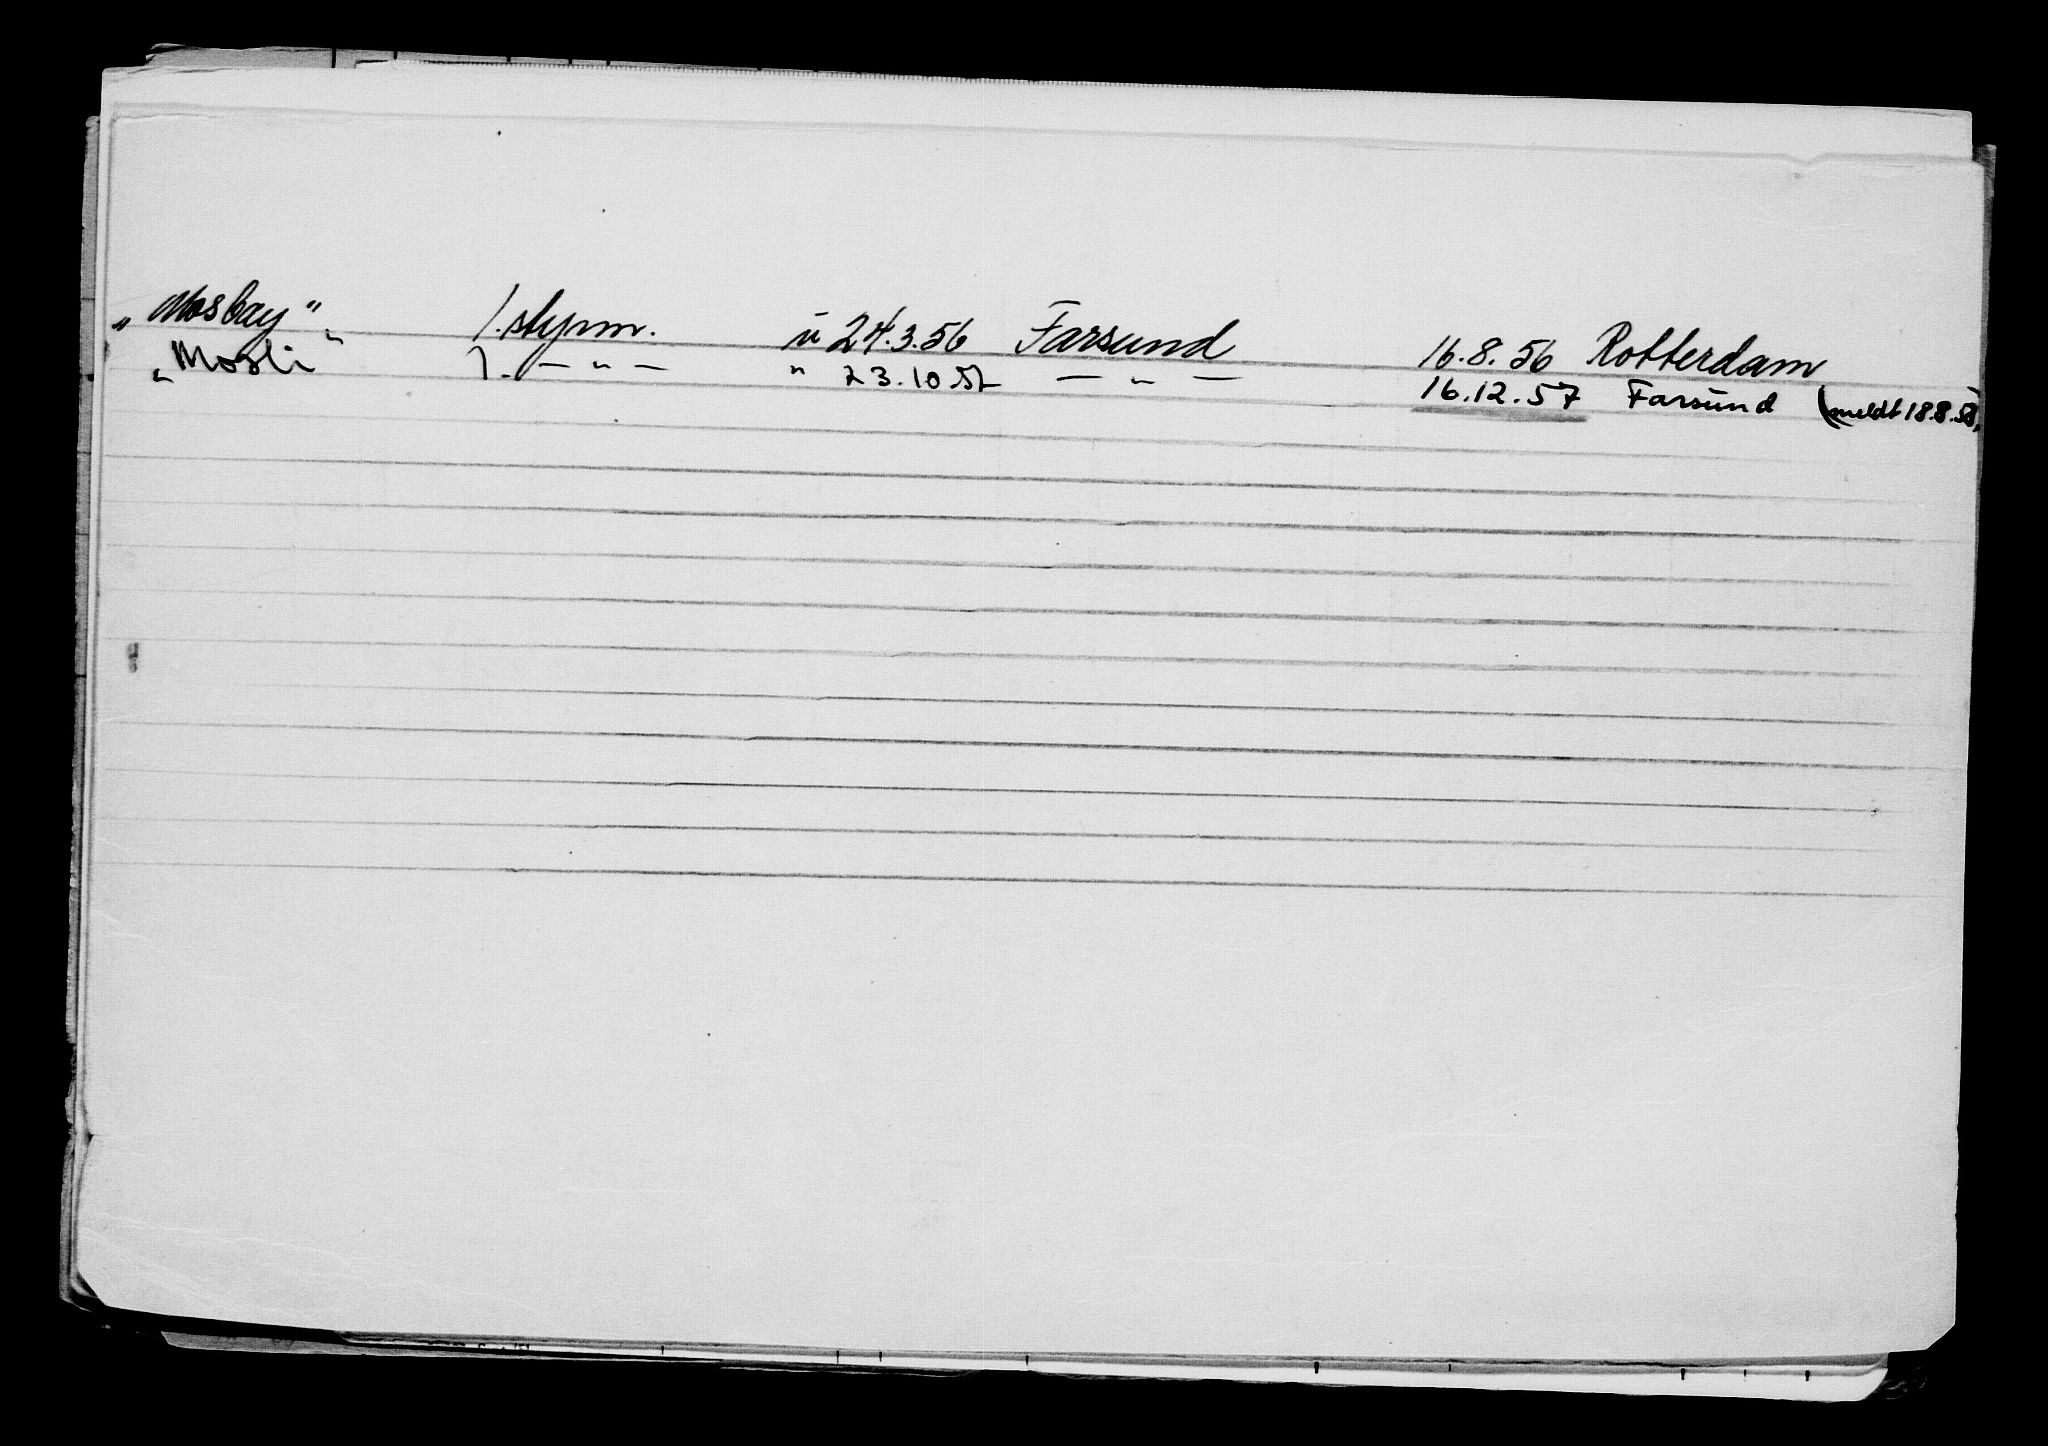 „Mosbay" 1. styrm. u 24.3.56 Farsund 16.8.56 Rotterdam
„Mosli" 1. — " — " 23.10 — " — 16.12.57 Farsund (meldt 18.8.58)